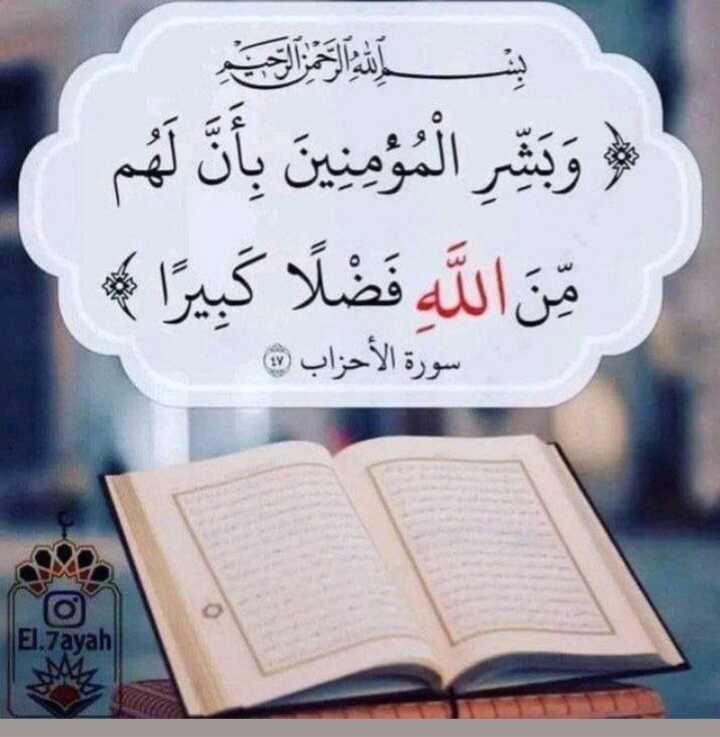 بِسْمِ اللَّهِ الرَّحْمَٰنِ الرَّحِيمِ
﴿ وَبَشِّرِ الْمُؤْمِنِينَ بِأَنَّ لَهُم
مِّنَ اللَّهِ فَضْلًا كَبِيرًا ﴾
سورة الأحزاب ٤٧
El.7ayah